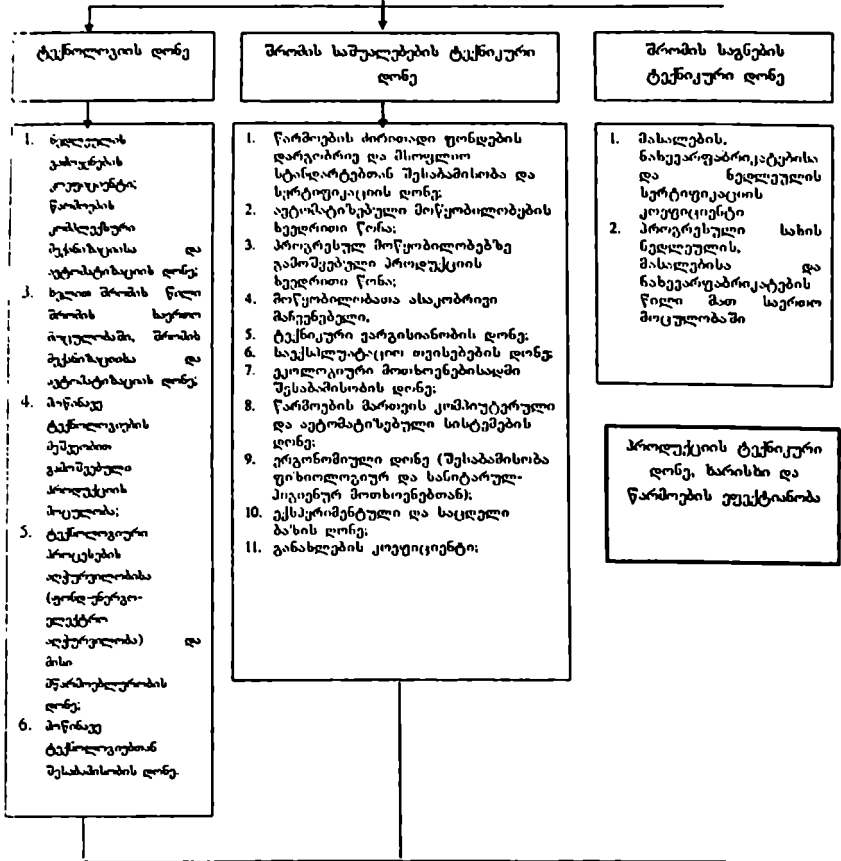 ტექნოლოგიის დონე
შრომის საშუალებების ტექნიკური
დონე
შრომის საგნების
ტექნიკური დონე
1. ნედლეულის
გამოყენების
კოეფიციენტი;
წარმოების
კომპლექსური
მექანიზაციისა და
ავტომატიზაციის დონე;
3. ხელით შრომის წილი
შრომის საერთო
მოცულობაში, შრომის
მექანიზაციისა და
ავტომატიზაციის დონე;
4. მოწინავე
ტექნოლოგიების
მეშვეობით
გამოშვებული
პროდუქციის
მოცულობა;
5. ტექნოლოგიური
პროცესების
აღჭურვილობისა
(ფონდ-ენერგო-
ელექტრო
აღჭურვილობა) და
მისი
მწარმოებლურობის
დონე;
6. მოწინავე
ტექნოლოგიებთან
შესაბამისობის დონე.
1. წარმოების ძირითადი ფონდების
დარგობრივ და მსოფლიო
სტანდარტებთან შესაბამისობა და
სერტიფიკაციის დონე;
2. ავტომატიზებული მოწყობილობების
ხვედრითი წონა;
3. პროგრესულ მოწყობილობებზე
გამოშვებული პროდუქციის
ხვედრითი წონა;
4. მოწყობილობათა ასაკობრივი
მაჩვენებელი,
5. ტექნიკური ვარგისიანობის დონე;
6. საექსპლუატაციო თვისებების დონე;
7. ეკოლოგიური მოთხოვნებისადმი
შესაბამისობის დონე;
8. წარმოების მართვის კომპიუტერული
და ავტომატიზებული სისტემების
დონე;
9. ერგონომიული დონე (შესაბამისობა
ფიზიოლოგიურ და სანიტარულ-
ჰიგიენურ მოთხოვნებთან);
10. ექსპერიმენტული და საცდელი
ბაზის დონე;
11. განახლების კოეფიციენტი;
1. მასალების,
ნახევარფაბრიკატებისა
და ნედლეულის
სერტიფიკაციის
კოეფიციენტი
2. პროგრესული სახის
ნედლეულის,
მასალებისა და
ნახევარფაბრიკატების
წილი მათ საერთო
მოცულობაში
პროდუქციის ტექნიკური
დონე, ხარისხი და
წარმოების ეფექტიანობა